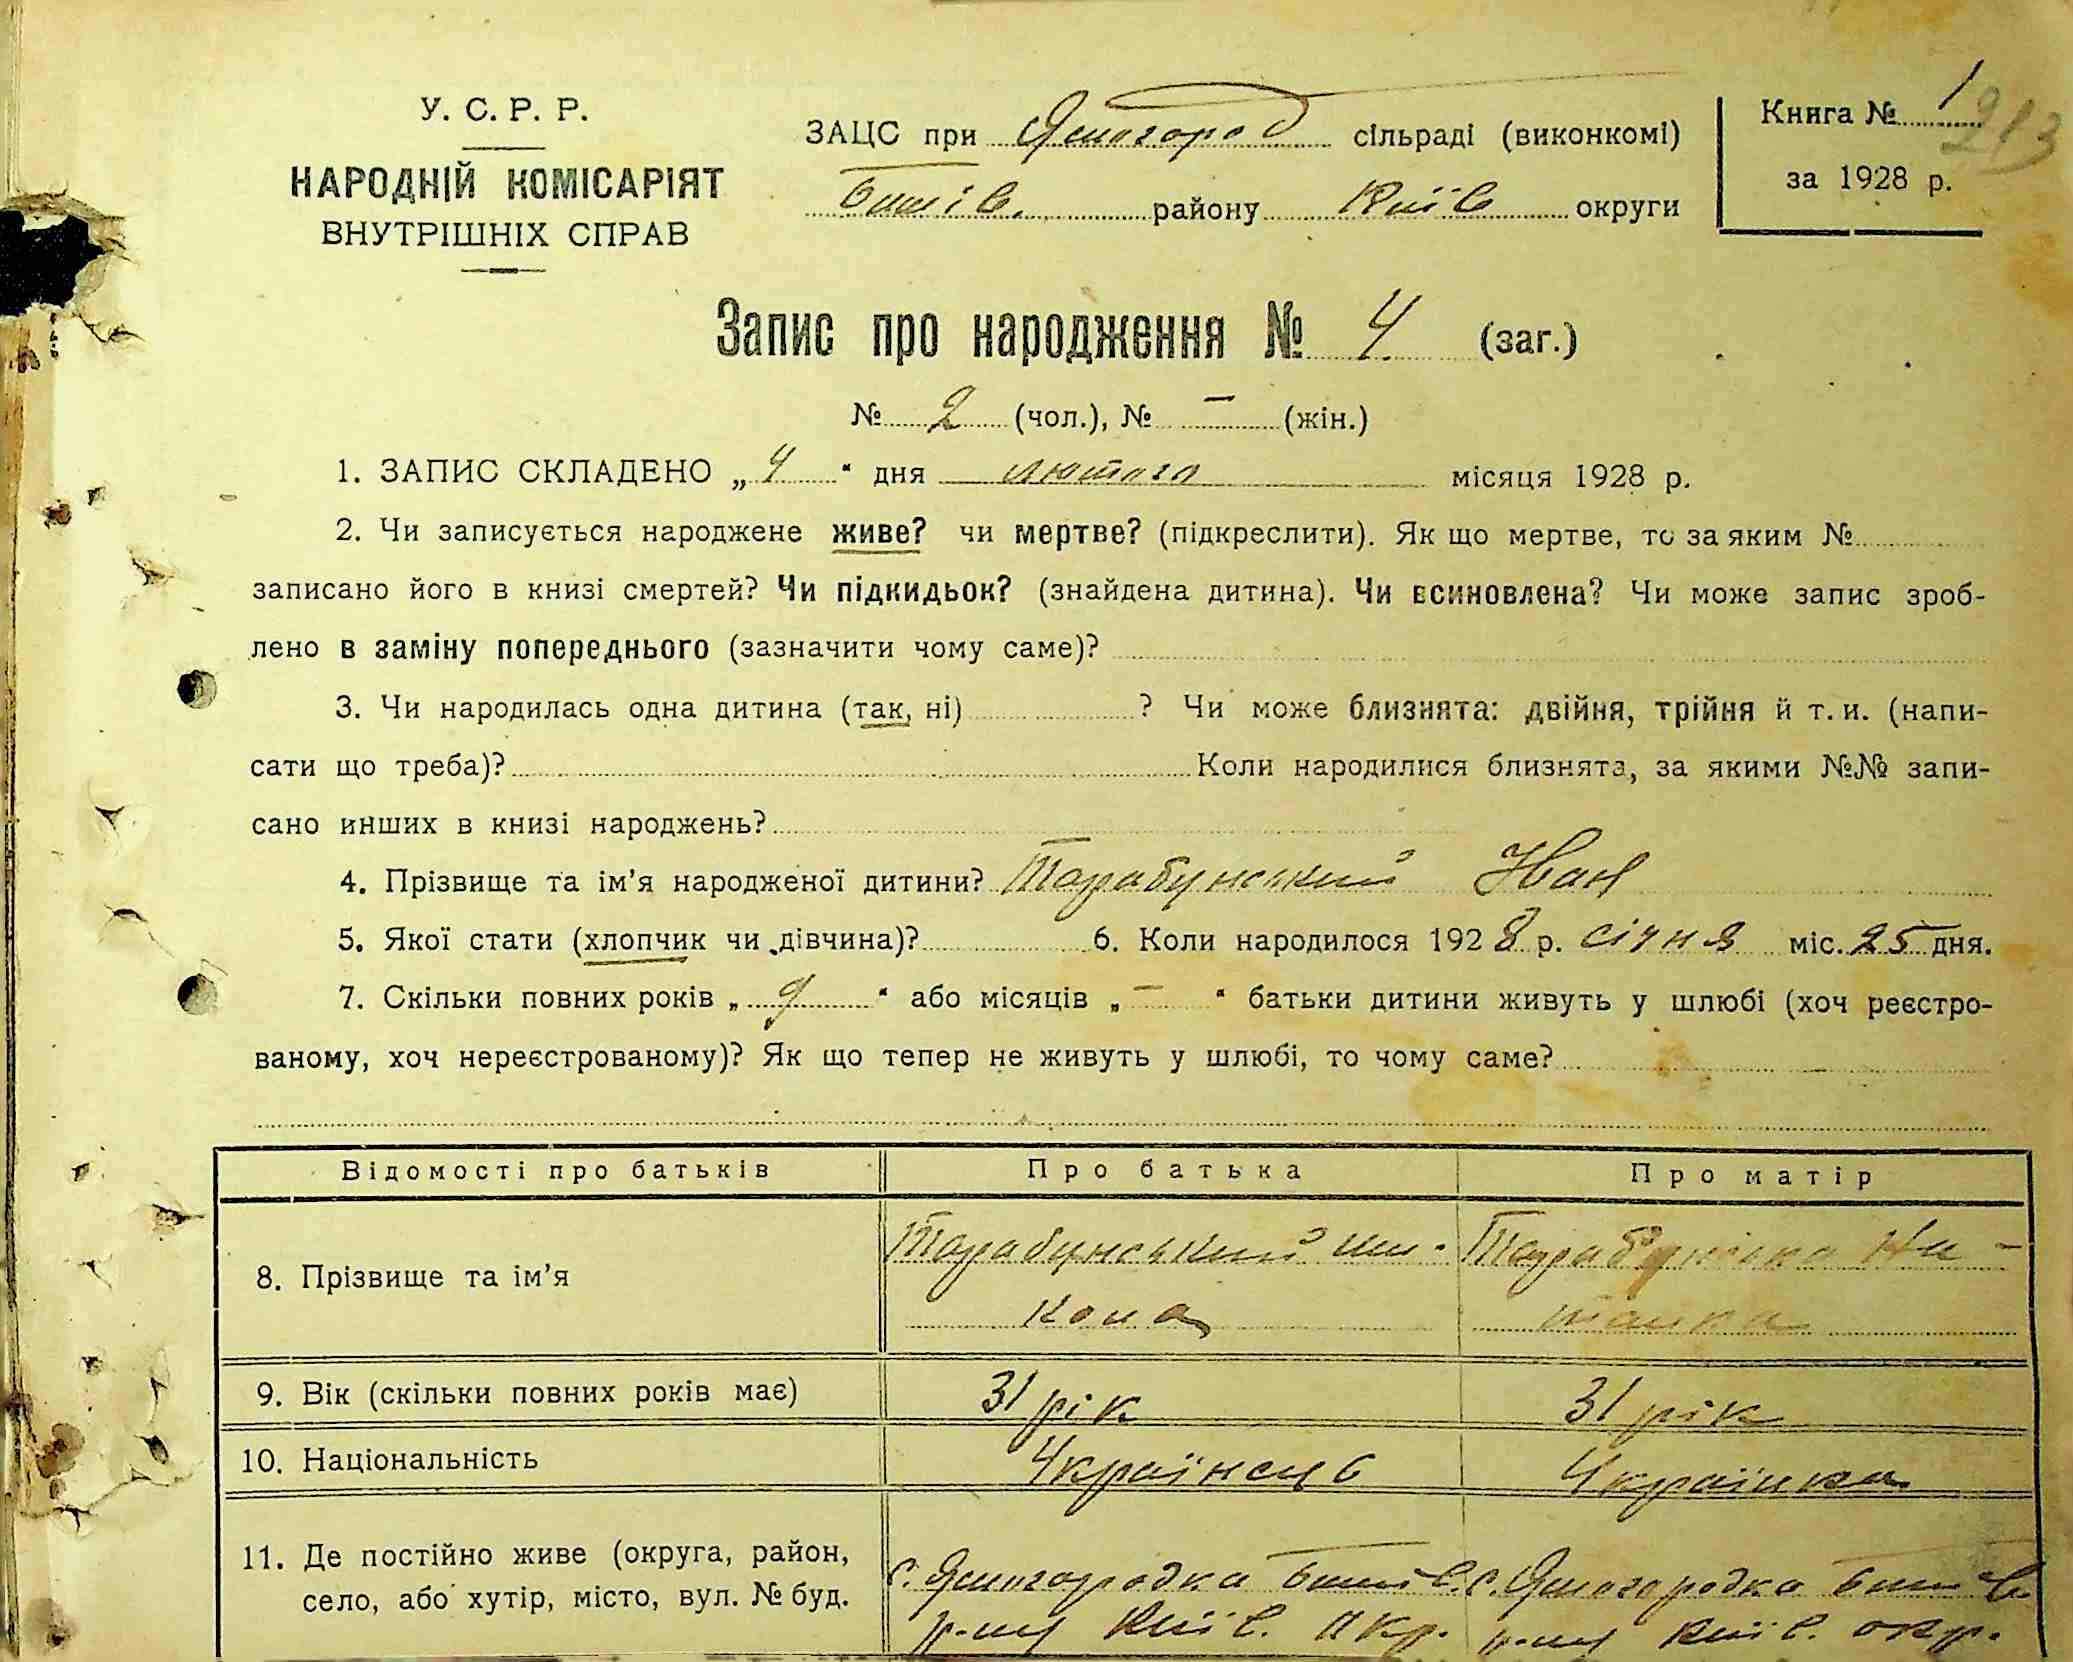 У. С. Р. Р.
НАРОДНІЙ КОМІСАРІЯТ
ВНУТРІШНІХ СПРАВ
ЗАЦС при Ясногород сільраді (виконкомі)
Бишів. району Київ округи
Книга № 1
213
за 1928 р.
Запис про народження № 4 (заг.)
№ 2 (чол.), № — (жін.)
1. ЗАПИС СКЛАДЕНО „ 4 “ дня лютого місяця 1928 р.
2. Чи записується народжене живе? чи мертве? (підкреслити). Як що мертве, то за яким №
записано його в книзі смертей? Чи підкидьок? (знайдена дитина). Чи всиновлена? Чи може запис зроб-
лено в заміну попереднього (зазначити чому саме)?
3. Чи народилась одна дитина (так, ні) ? Чи може близнята: двійня, трійня й т. и. (напи-
сати що треба)? Коли народилися близнята, за якими №№ запи-
сано инших в книзі народжень?
4. Прізвище та ім’я народженої дитини? Тарабунський Іван
5. Якої стати (хлопчик чи дівчина)? 6. Коли народилося 1928 р. січня міс. 25 дня.
7. Скільки повних років „ 9 “ або місяців „ — “ батьки дитини живуть у шлюбі (хоч реєстро-
ваному, хоч нереєстрованому)? Як що тепер не живуть у шлюбі, то чому саме?
Відомості про батьків Про батька Про матір
8. Прізвище та ім’я Тарабунський Ми-
кола
9. Вік (скільки повних років має) 31 рік 31 рік
10. Національність Українець Українка
11. Де постійно живе (округа, район,
село, або хутір, місто, вул. № буд.
с. Ясногородка Бишів. с. Ясногородка Бишів
р-ну Київ. окр. р-ну Київ. окр.